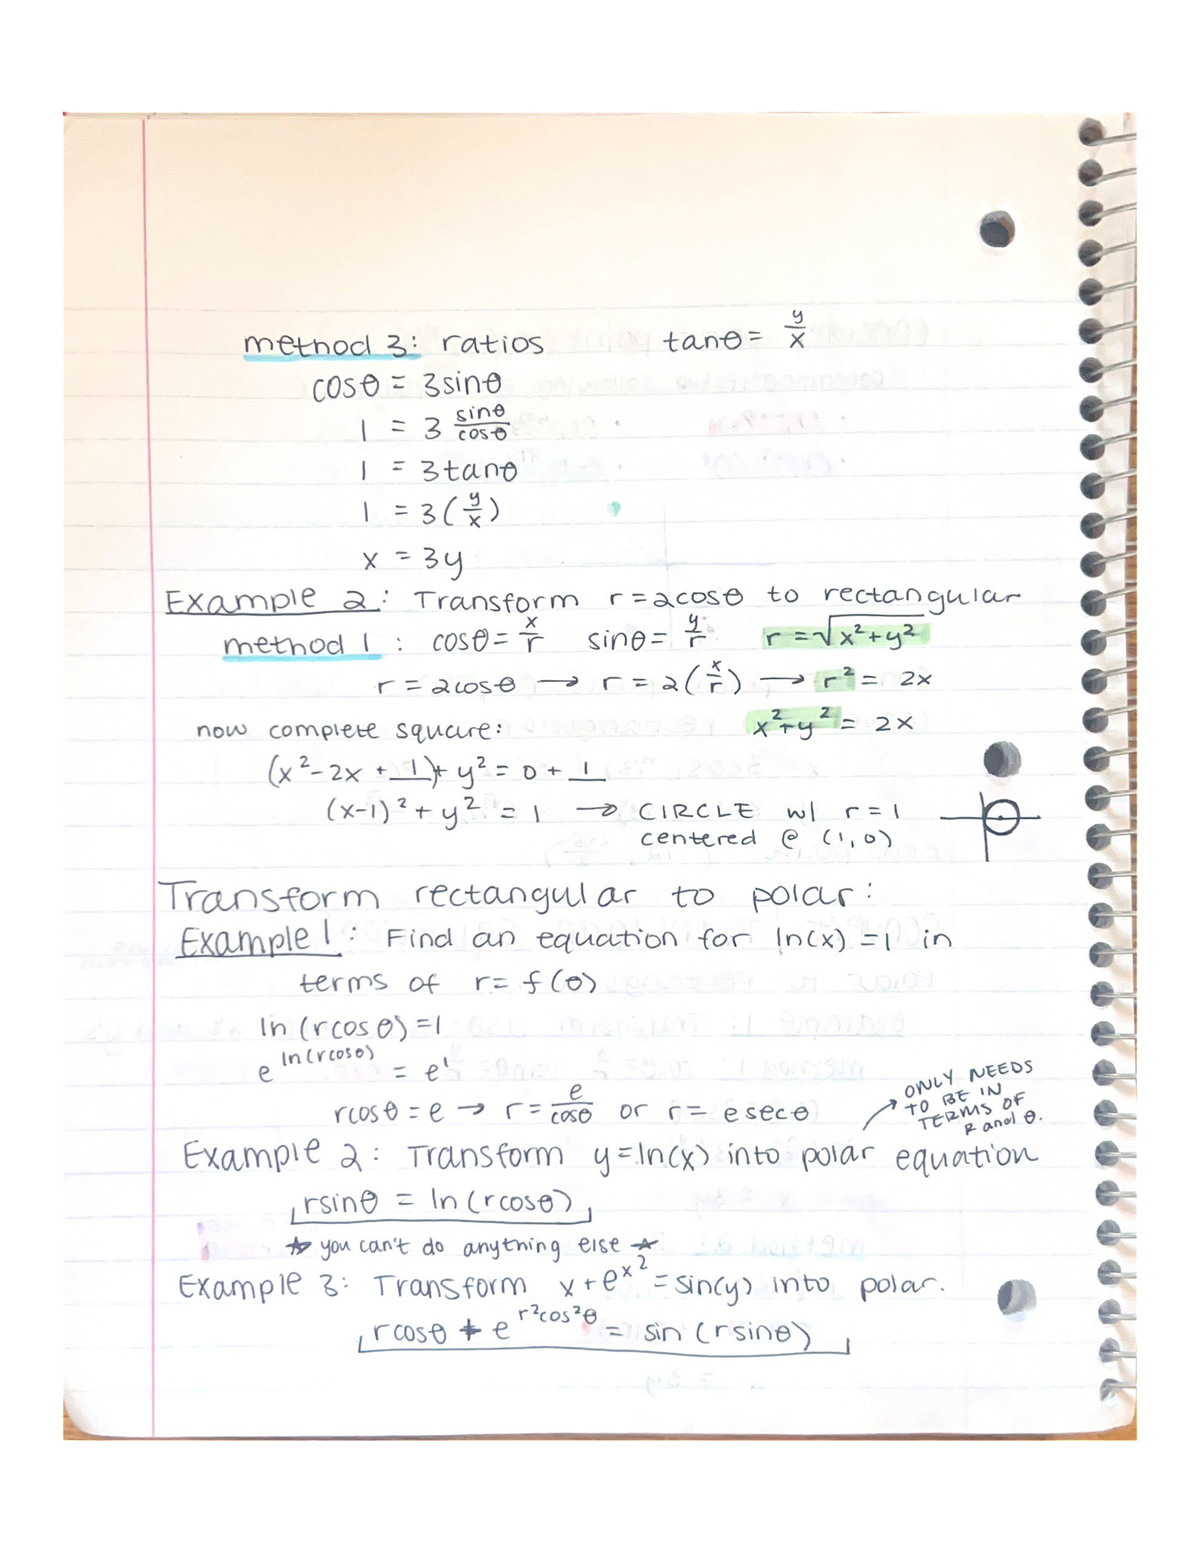 method 3: ratios tanθ = y/x
cosθ = 3sinθ
1 = 3 sinθ/cosθ
1 = 3tanθ
1 = 3(y/x)
x = 3y
Example 2: Transform r=2cosθ to rectangular
method 1: cosθ = x/r sinθ = y/r r = √x²+y²
r = 2cosθ → r = 2(x/r) → r² = 2x
now complete square: x²+y² = 2x
(x²-2x + 1)+ y² = 0 + 1
(x-1)² + y² = 1 → CIRCLE w/ r=1
centered @ (1,0)
Transform rectangular to polar:
Example 1: Find an equation for ln(x) =1 in
terms of r= f(θ)
ln(rcosθ)=1
e^ln(rcosθ) = e¹
rcosθ = e → r = e/cosθ or r= esecθ
ONLY NEEDS
TO BE IN
TERMS OF
R and θ.
Example 2: Transform y=ln(x) into polar equation
rsinθ = ln(rcosθ)
☆ you can't do anything else ☆
Example 3: Transform x+e^x² = sin(y) into polar.
rcosθ + e^r²cos²θ = sin(rsinθ)